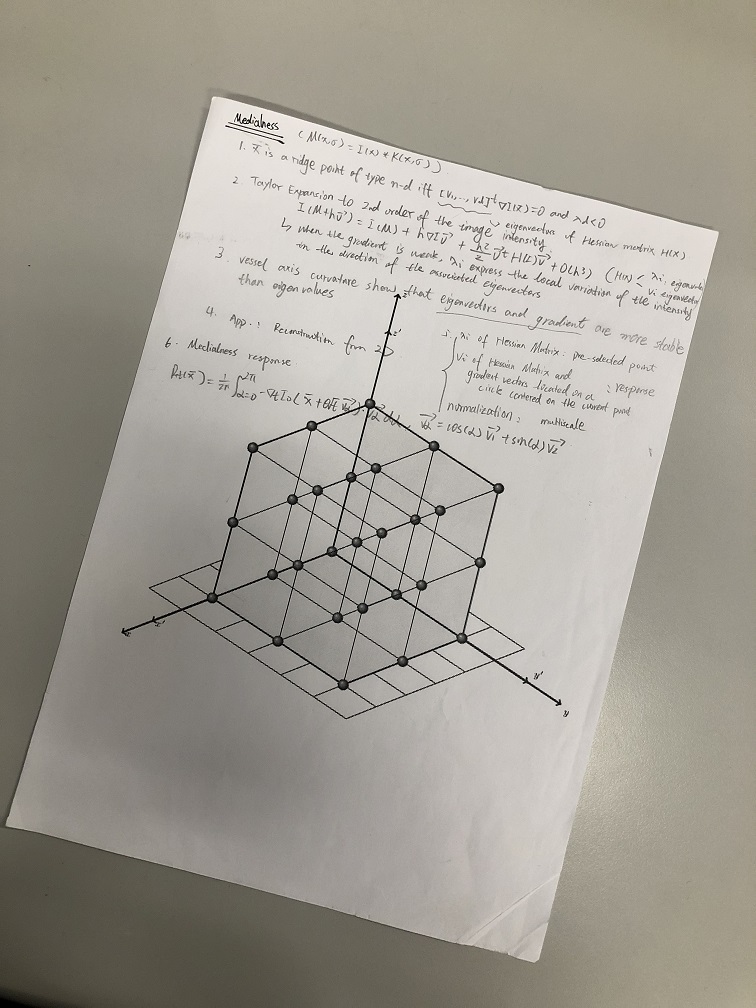 Medialness
( M(x,σ) = I(x) * K(x,σ) )
1. x⃗ is a ridge point of type n-d iff [V₁,..., Vd]ᵗ ∇I(x⃗)=0 and λd<0
↳ eigenvectors of Hessian matrix H(x)
2. Taylor Expansion to 2nd order of the image intensity.
I(M+hv⃗) = I(M) + h∇I v⃗ + h²/2 v⃗ᵗ H(I) v⃗ + O(h³) (H(M) < λi: eigenvalue
Vi eigenvector
↳ when the gradient is weak, λi express the local variation of the intensity
in the direction of the associated eigenvectors
3. vessel axis curvature show that eigenvectors and gradient are more stable
than eigenvalues
4. App.: Reconstruction from 2D
5. λi of Hessian Matrix: pre-selected point
Vi of Hessian Matrix and
gradient vectors located on a : response
circle centered on the current point
normalization: multiscale
6. Medialness response
= 1/2π ∫ 2π α=0 V⃗α = cos(α) V⃗₁ + sin(α) V⃗₂
z
z'
x'
x
y'
y